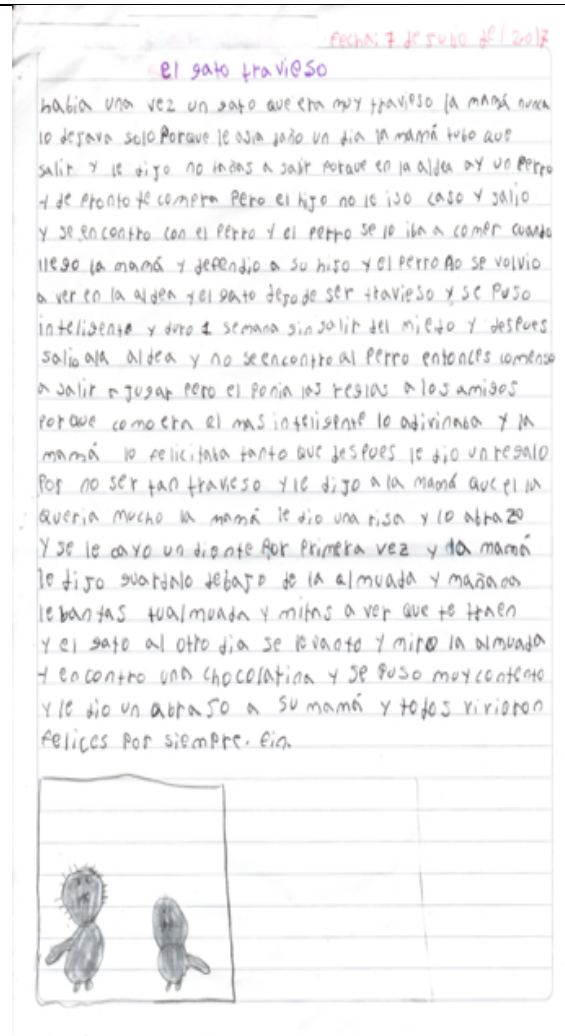 fecha: 7 de julio del 2017
el gato travieso
había una vez un gato que era muy travieso la mamá nunca
lo dejava solo Porque le asia daño un dia la mamá tubo que
salir y le dijo no bayas a salir Porque en la aldea ay un Perro
y de Pronto te comera Pero el hijo no le iso caso y salio
y se encontro con el Perro y el Perro se lo iba a comer cuando
llego la mamá y defendio a su hijo y el Perro no se volvio
a ver en la aldea y el gato dejo de ser travieso y se Puso
inteligente y duro 1 semana sin salir del miedo y despues
salio ala aldea y no se encontro al Perro entonces comenso
a salir a jugar Pero el Ponia las reglas a los amigos
Por que como era el mas inteligente lo adivinaba y la
mamá lo felicitaba tanto que desPues le dio un regalo
Por no ser tan travieso y le dijo a la mamá que el la
queria mucho la mamá le dio una risa y lo abrazo
y se le cayo un diente Por Primera vez y la mamá
le dijo guardalo debajo de la almuada y mañana
lebantas tualmuada y miras a ver que te traen
y el gato al otro dia se levanto y miro la almuada
y encontro una chocolatina y se Puso muy contento
y le dio un abraso a su mamá y todos vivieron
felices Por siemPre. fin.